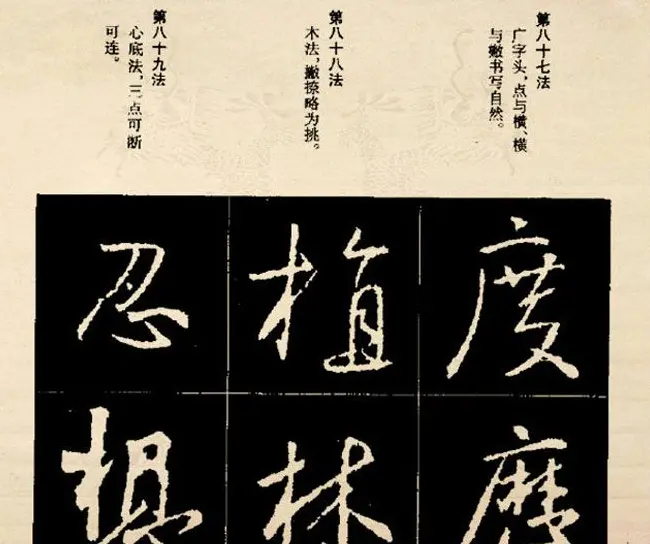 第八十七法
广字头，点与横、横
与撇书写自然。
度
第八十八法
木法，撇捺略为挑。
植
林
第八十九法
心底法，三点可断
可连。
忍